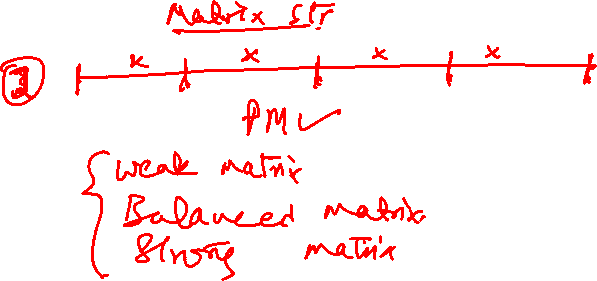 Matrix str
3 x x x x
PM ✓
Weak matrix
Balanced matrix
Strong matrix